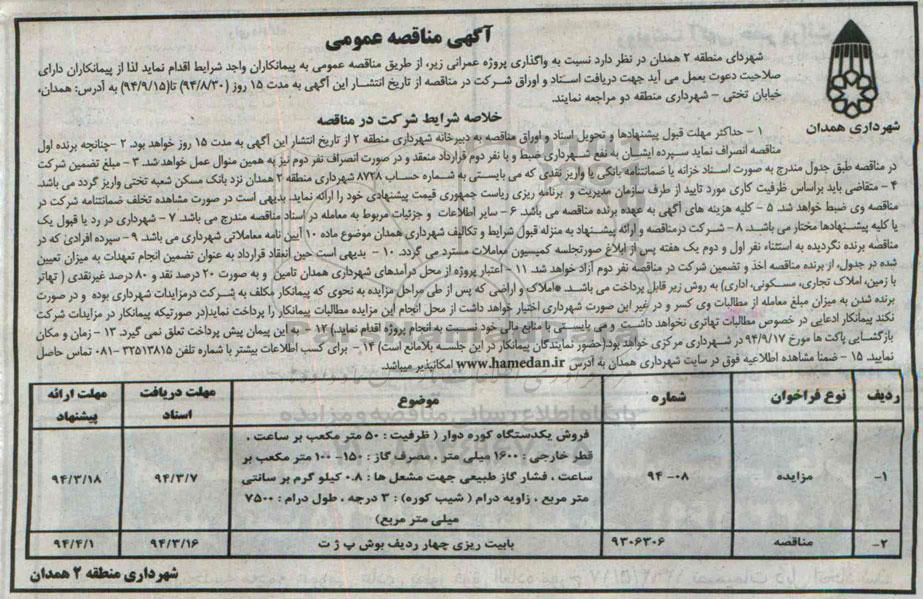 آگهی مناقصه عمومی
شهردای منطقه ۲ همدان در نظر دارد نسبت به واگذاری پروژه عمرانی زیر، از طریق مناقصه عمومی به پیمانکاران واجد شرایط اقدام نماید لذا از پیمانکاران دارای
صلاحیت دعوت بعمل می آید جهت دریافت اسناد و اوراق شرکت در مناقصه از تاریخ انتشار این آگهی به مدت ۱۵ روز (۹۴/۸/۳۰) تا(۹۴/۹/۱۵) به آدرس: همدان،
خیابان تختی – شهرداری منطقه دو مراجعه نمایند.
شهرداری همدان
خلاصه شرایط شرکت در مناقصه
۱ – حداکثر مهلت قبول پیشنهادها و تحویل اسناد و اوراق مناقصه به دبیرخانه شهرداری منطقه ۲ از تاریخ انتشار این آگهی به مدت ۱۵ روز خواهد بود. ۲ –چنانچه برنده اول
مناقصه انصراف نماید سپرده ایشان به نفع شهرداری ضبط و با نفر دوم قرارداد منعقد و در صورت انصراف نفر دوم نیز به همین منوال عمل خواهد شد. ۳ – مبلغ تضمین شرکت
در مناقصه طبق جدول مندرج به صورت اسناد خزانه یا ضمانتنامه بانکی یا واریز نقدی که می بایستی به شماره حساب ۸۷۲۸ شهرداری منطقه ۲ همدان نزد بانک مسکن شعبه تختی واریز گردد می باشد.
۴ – متقاضی باید براساس ظرفیت کاری مورد تایید از طرف سازمان مدیریت و برنامه ریزی ریاست جمهوری قیمت پیشنهادی خود را ارائه نماید. بدیهی است در صورت مشاهده تخلف ضمانتنامه شرکت در
مناقصه وی ضبط خواهد شد. ۵ – کلیه هزینه های آگهی به عهده برنده مناقصه می باشد. ۶ – سایر اطلاعات و جزئیات مربوط به معامله در اسناد مناقصه مندرج می باشد. ۷ – شهرداری در رد یا قبول یک
یا کلیه پیشنهادها مختار می باشد. ۸ – شرکت درمناقصه و ارائه پیشنهاد به منزله قبول شرایط و تکالیف شهرداری همدان موضوع ماده ۱۰ آیین نامه معاملاتی شهرداری می باشد. ۹ – سپرده افرادی که در
مناقصه برنده نگردیده به استثناء نفر اول و دوم یک هفته پس از ابلاغ صورتجلسه کمیسیون معاملات مسترد می گردد. ۱۰ – بدیهی است حین انعقاد قرارداد به عنوان تضمین انجام تعهدات به میزان تعیین
شده در جدول، از برنده مناقصه اخذ و تضمین شرکت در مناقصه نفر دوم آزاد خواهد شد. ۱۱ – اعتبار پروژه از محل درآمدهای شهرداری همدان تامین و به صورت ۲۰ درصد نقد و ۸۰ درصد غیرنقدی ( تهاتر
با زمین، املاک تجاری، مسکونی، اداری) به روش زیر قابل پرداخت می باشد. *املاک و اراضی که پس از طی مراحل مزایده به نحوی که پیمانکار مکلف به شرکت درمزایدات شهرداری بوده و در صورت
برنده شدن به میزان مبلغ معامله از مطالبات وی کسر و در غیر این صورت شهرداری اختیار خواهد داشت از محل انجام این مزایده مطالبات پیمانکار را پرداخت نماید(در صورتیکه پیمانکار در مزایدات شرکت
نکند پیمانکار ادعایی در خصوص مطالبات تهاتری نخواهد داشت و می بایستی با منابع مالی خود نسبت به انجام پروژه اقدام نماید) ۱۲ – به این پیمان پیش پرداخت تعلق نمی گیرد. ۱۳ – زمان و مکان
بازگشایی پاکت ها مورخ ۹۴/۹/۱۷ در شهرداری مرکزی خواهد بود.(حضور نمایندگان پیمانکار در این جلسه بلامانع است) ۱۴ – برای کسب اطلاعات بیشتر با شماره تلفن ۳۲۵۱۳۸۱۵ –۰۸۱ تماس حاصل
نمایید. ۱۵ – ضمنا مشاهده اطلاعیه فوق در سایت شهرداری همدان به آدرس www.hamedan.ir امکانپذیر میباشد.
ردیف نوع فراخوان شماره موضوع مهلت دریافت اسناد مهلت ارائه پیشنهاد
۱– مزایده ۰۸–۹۴ فروش یکدستگاه کوره دوار ( ظرفیت : ۵۰ متر مکعب بر ساعت ، ۹۴/۳/۷ ۹۴/۳/۱۸
قطر خارجی : ۱۶۰۰ میلی متر ، مصرف گاز : ۱۵۰– ۱۰۰ متر مکعب بر
ساعت ، فشار گاز طبیعی جهت مشعل ها : ۰.۸ کیلو گرم بر سانتی
متر مربع ، زاویه درام ( شیب کوره) : ۳ درجه ، طول درام : ۷۵۰۰
میلی متر مربع)
۲– مناقصه ۹۳۰۶۳۰۶ بابیت ریزی چهار ردیف بوش پ ژ ت ۹۴/۳/۱۶ ۹۴/۴/۱
شهرداری منطقه ۲ همدان